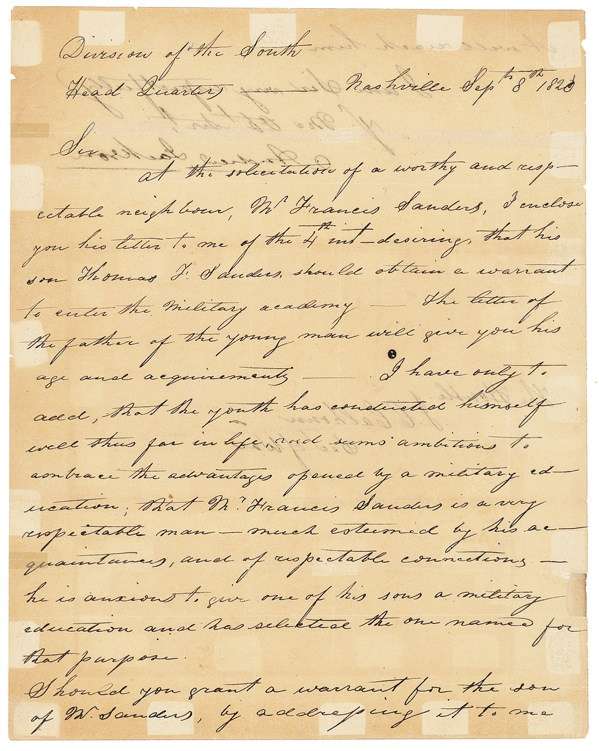 Division of the South
Head Quarters Nashville Septh 8th 1820
Sir
At the solicitation of a worthy and resp-
ectable neighbour, Mr Francis Sanders, I enclose
you his letter to me of the 4th int-desiring, that his
son Thomas F. Sanders, should obtain a warrant
to enter the Military academy — The letter of
the father of the young man will give you his
age and acquirements — I have only to
add, that the youth has conducted himself
well thus far in life, and seems ambitious to
embrace the advantages opened by a military ed-
ucation; that Mr. Francis Sanders is a very
respectable man — much esteemed by his ac-
quaintances, and of respectable connections —
he is anxious to give one of his sons a military
education and has selected the one named for
that purpose.
Should you grant a warrant for the son
of Mr. Sanders, by addressing it to me